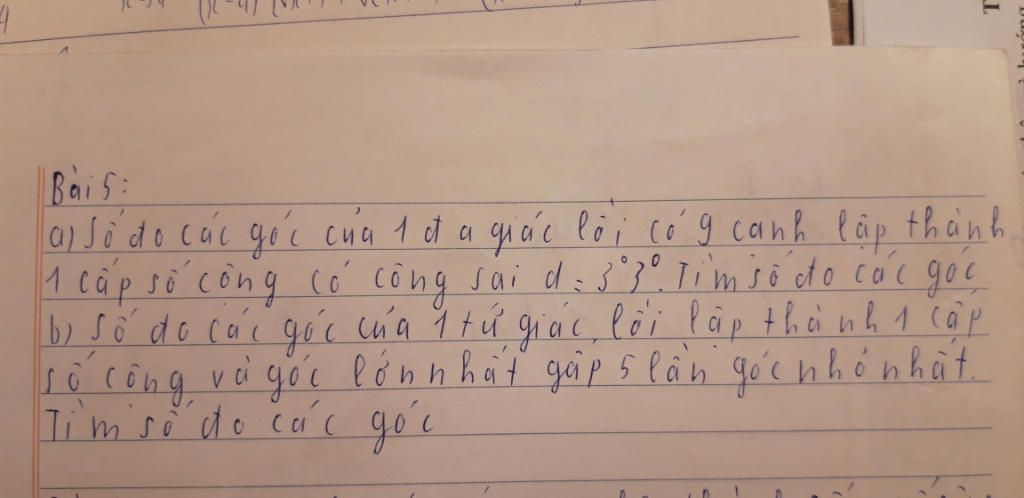 Bài 5:
a) Số đo các góc của 1 đa giác lồi có 9 cạnh lập thành
1 cấp số cộng có công sai d = 3° 3°. Tìm số đo các góc
b) Số đo các góc của 1 tứ giác lồi lập thành 1 cấp
số cộng và góc lớn nhất gấp 5 lần góc nhỏ nhất.
Tìm số đo các góc